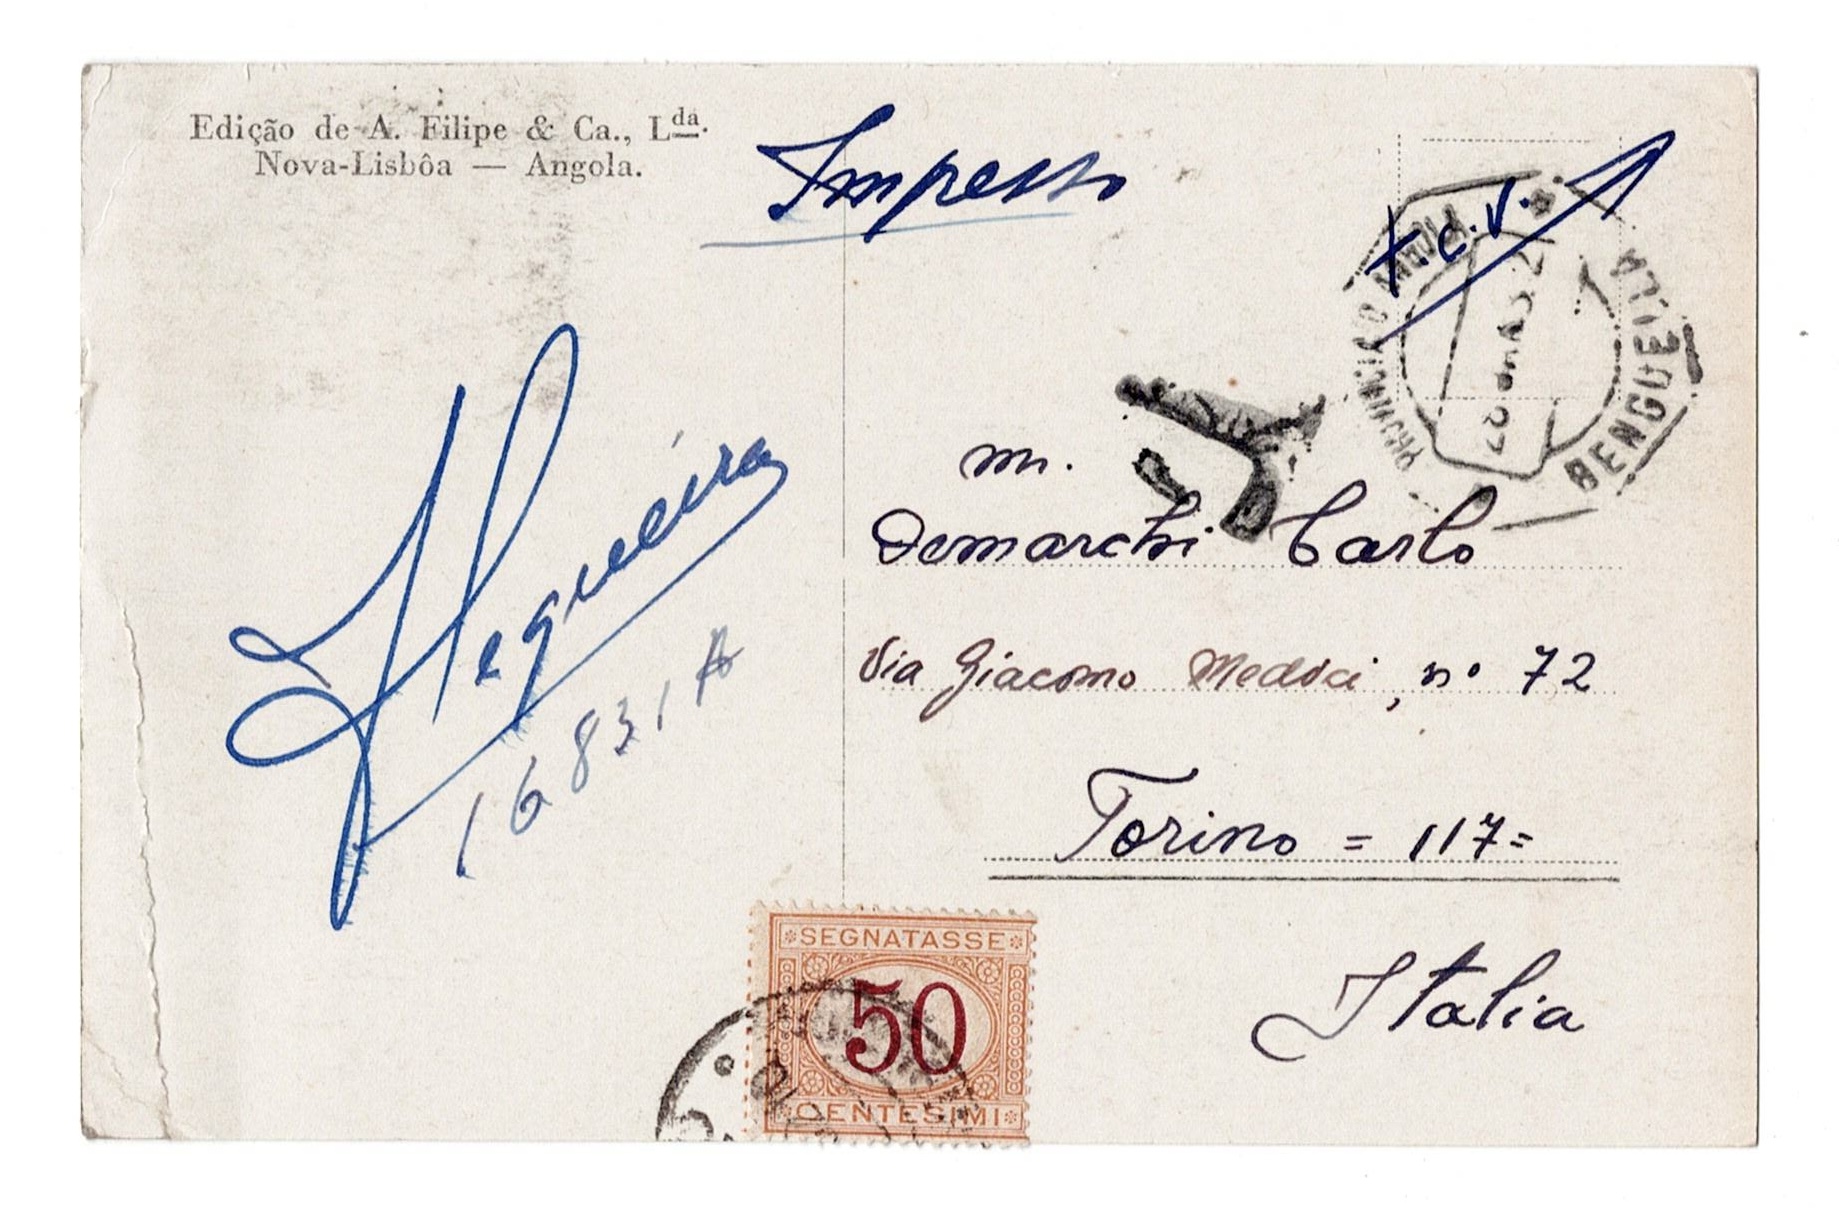 Edição de A. Filipe & Ca., Lda.
Nova-Lisbôa — Angola.
Impesso
t.c.v.
BENGUELA
T
Mr.
Demarchi Carlo
Via Giacomo Medici, nº 72
Torino = 117=
Italia
16831A
SEGNATASSE
50
CENTESIMI